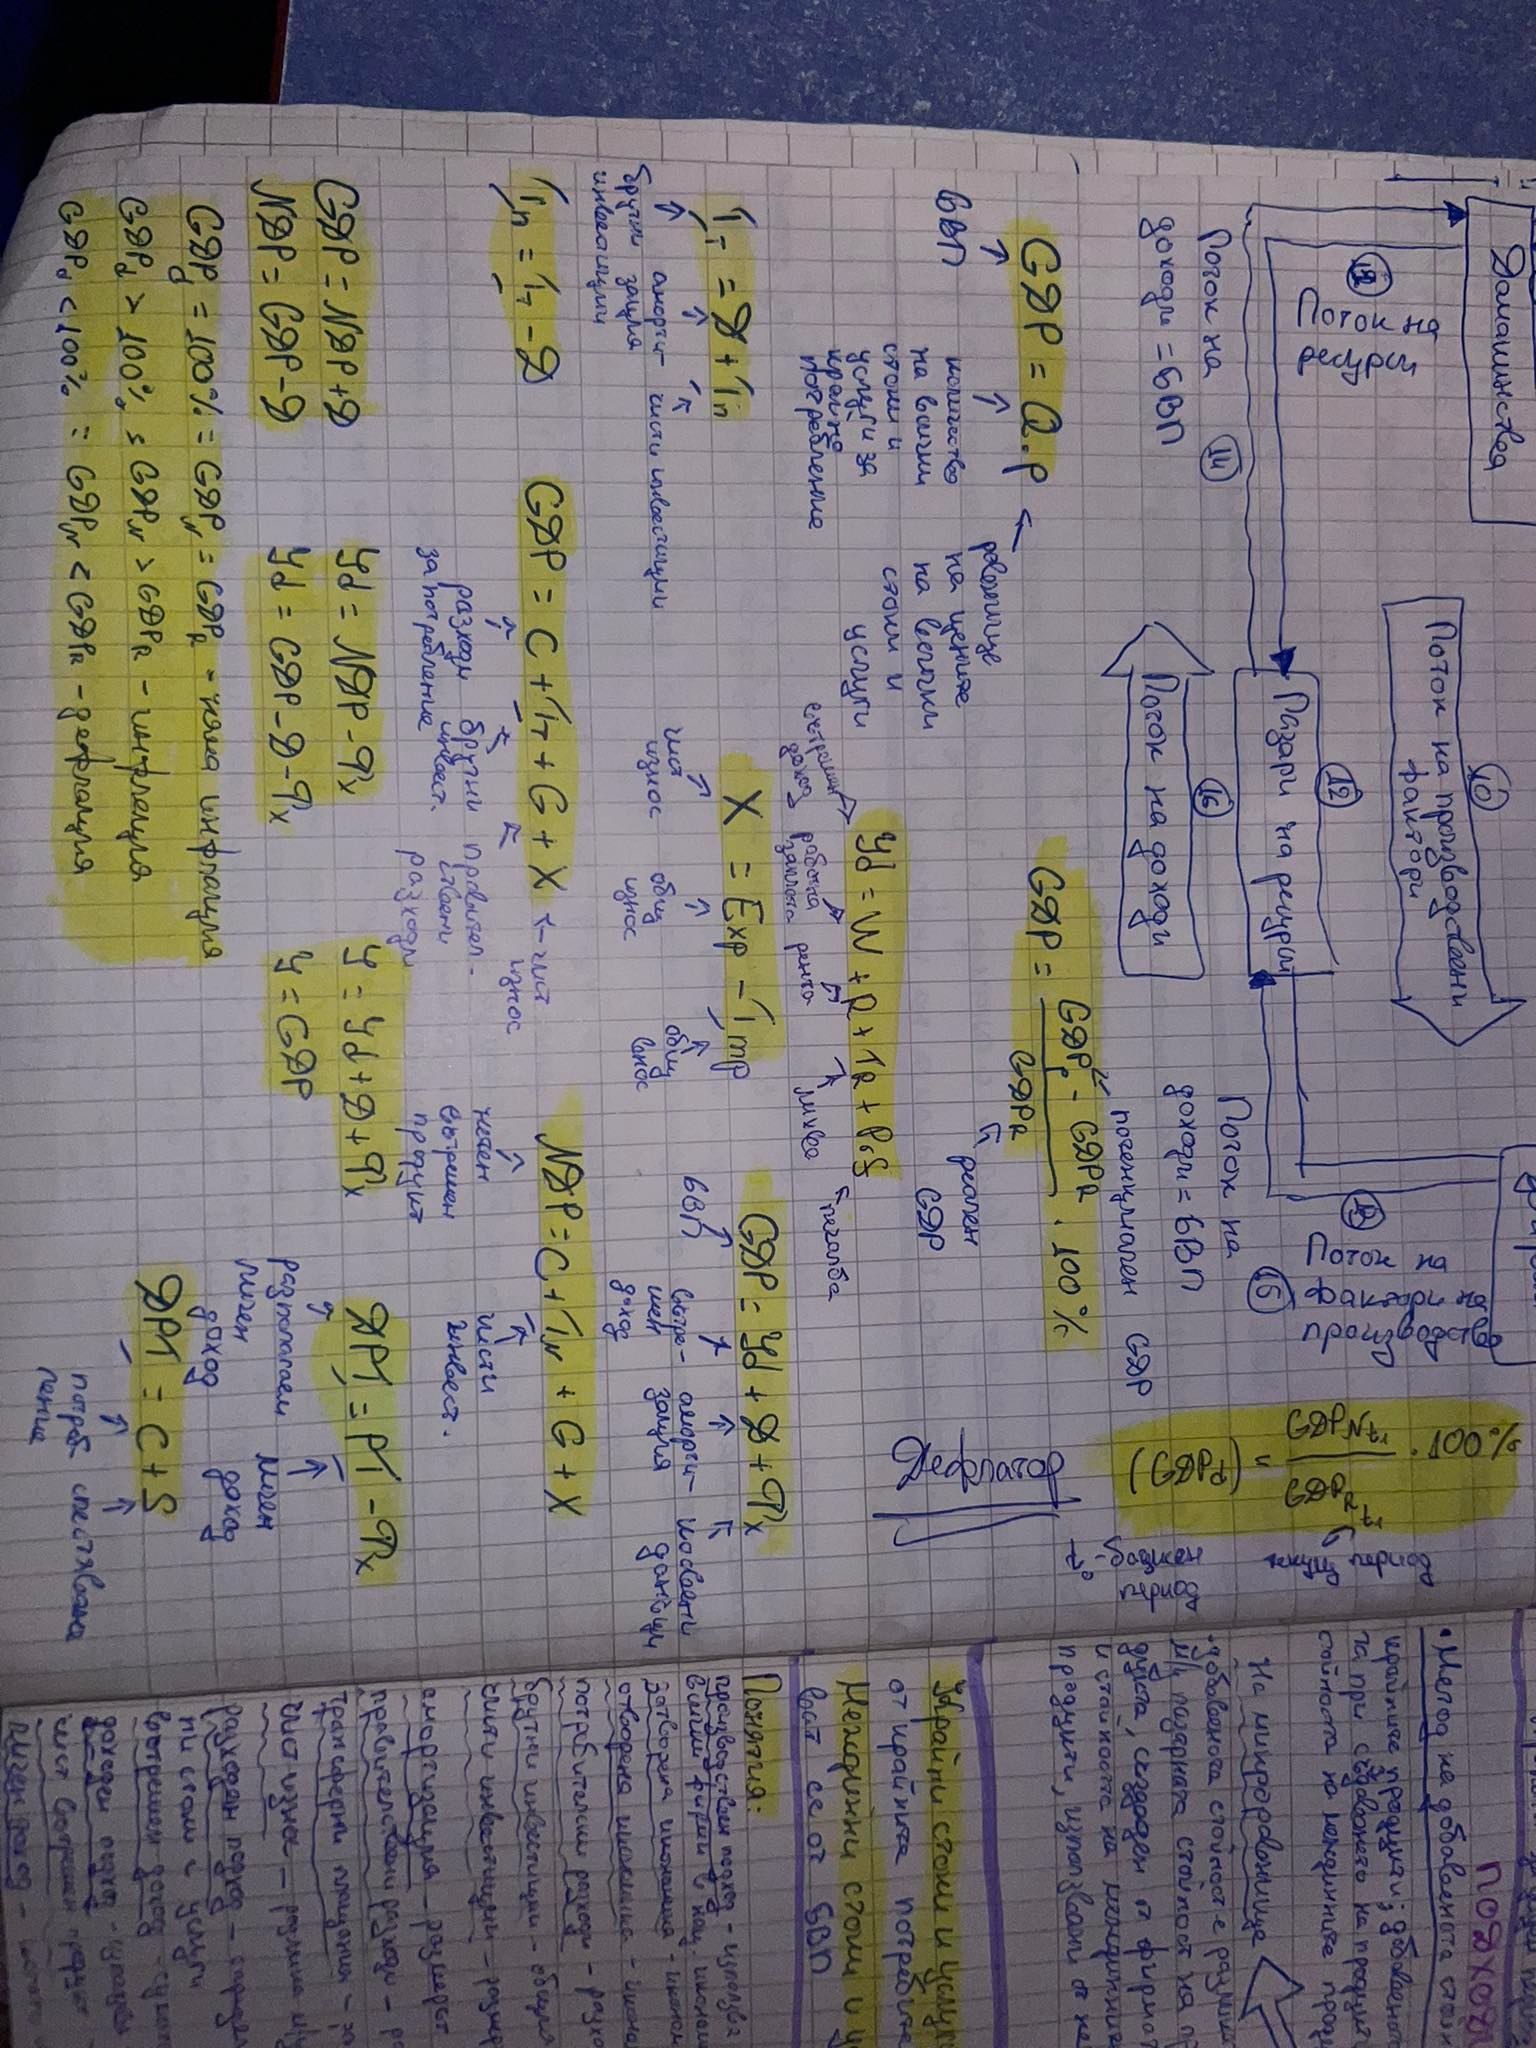 Домакинства
10
Поток на производствени
фактори
Поток на
ресурси
12
Пазари на ресурси
Поток на
фактори на
производство
15
14
Поток на
доходи = БВП
16
Поток на доходи
Поток на
доходи = БВП
(GDPd) = GDPNt1 / GDPRt1 . 100%
текущ период
t0 - базисен
период
Дефлатор
потенциален GDP
GDP = Q.p
GDP = GDPp - GDPR / GDPR . 100%
БВП
количество
на всички
стоки и
услуги за
крайно
потребление
равнище
на цените
на всички
стоки и
услуги
реален
GDP
Yd = W + R + IR + Prf
вътрешен
доход
работна
заплата
рента
лихва
печалба
IT = D + In
X = Exp - Imp
GDP = Yd + D + Tx
брутни
инвестиции
аморти-
зация
чисти инвестиции
чист
износ
общ
износ
общ
внос
БВП
вътре-
шен
доход
аморти-
зация
косвени
данъци
In = IT - D
GDP = C + IT + G + X
чист
износ
NDP = C + IN + G + X
разходи
за потребление
брутни
инвест.
правител-
ствени
разходи
нетен
вътрешен
продукт
чисти
инвест.
GDP = NDP + D
Yd = NDP - Tx
Y = Yd + D + Tx
DPI = PI - Tx
NDP = GDP - D
Yd = GDP - D - Tx
Y = GDP
разполагаем
личен
доход
личен
доход
GDPd = 100% = GDPN = GDPR - няма инфлация
GDPd > 100% = GDPN > GDPR - инфлация
GDPd < 100% = GDPN < GDPR - дефлация
DPI = C + S
потреб-
ление
спестявания
ПОДХОДИ
• Метод на добавената стойн
крайните продукти; добавената
та при създаването на продукти
стойността на междинните проду
На микроравнище
- добавената стойност е разлика
м/у пазарната стойност на пр
дукта, създаден от фирмат
и стойността на междинни
продукти, използвани от не
Крайни стоки и услуги
от крайните потребите
Междинни стоки и у
ват се от БВП
Понятия:
производствен подход - използва
всички фирми в нац. иконом
затворена икономика - иконом
отворена икономика - иконом
потребителски разходи - разхо
брутни инвестиции - общия
чисти инвестиции - размер
амортизация - размерът
правителствени разходи - ра
трансферни плащания -
чист износ - разлика м/у
разходен подход - определ
ни стоки и услуги
вътрешен доход - сумата
доходен подход - използва
чист вътрешен продукт
личен доход -